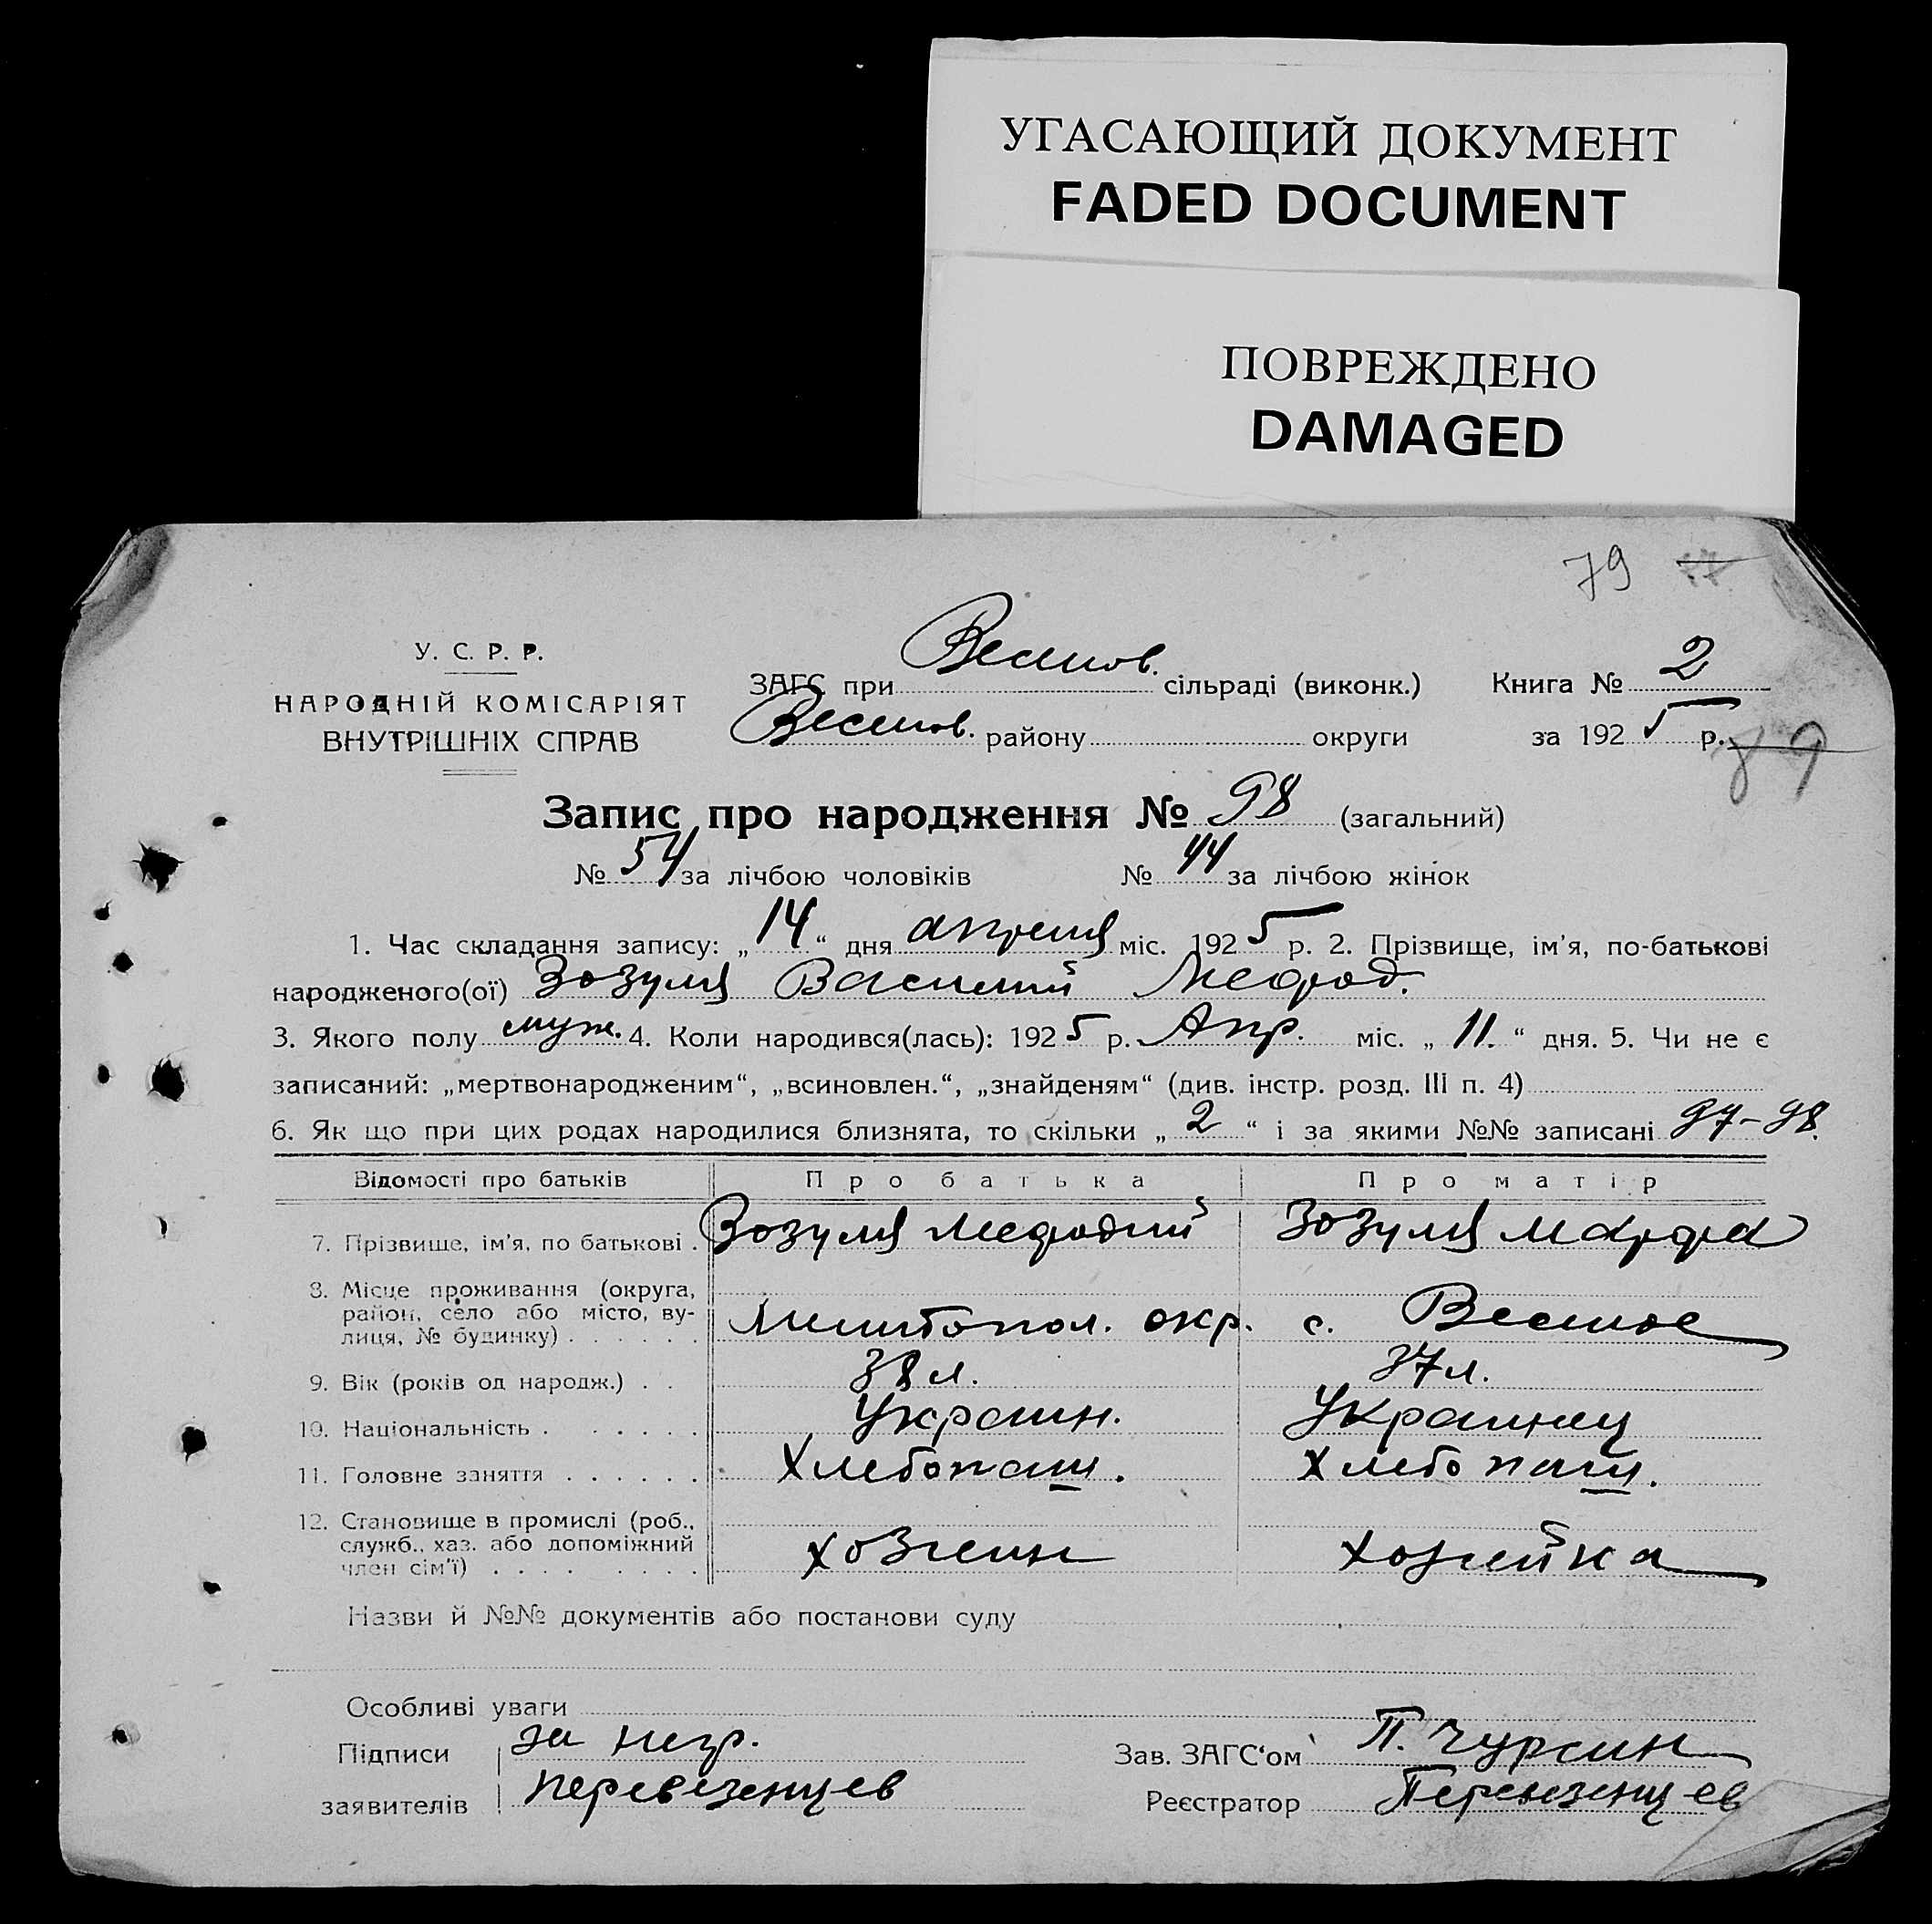 УГАСАЮЩИЙ ДОКУМЕНТ
FADED DOCUMENT
ПОВРЕЖДЕНО
DAMAGED
79
У. С. Р. Р.
НАРОДНІЙ КОМІСАРІЯТ
ВНУТРІШНІХ СПРАВ
ЗАГС при Веселов. сільраді (виконк.) Книга № 2
Веселов. району округи за 1925 р.
89
Запис про народження № 98 (загальний)
№ 54 за лічбою чоловіків № 44 за лічбою жінок
1. Час складання запису: „14“ дня апреля міс. 1925 р. 2. Прізвище, ім’я, по-батькові
народженого(ої) Зозуля Василий Мефод.
3. Якого полу муж. 4. Коли народився(лась): 1925 р. Апр. міс. „11.“ дня. 5. Чи не є
записаний: „мертвонародженим“, „всиновлен.“, „знайденям“ (див. інстр. розд. III п. 4)
6. Як що при цих родах народилися близнята, то скільки „2“ і за якими №№ записані 97-98.
Відомості про батьків Про батька Про матір
7. Прізвище, ім’я, по батькові . Зозуля Мефодий Зозуля Марфа
8. Місце проживання (округа,
район, село або місто, ву-
лиця, № будинку) . . . . . . Мелитопол. окр. с. Веселое
9. Вік (років од народж.) . . 38 л. 37 л.
10. Національність . . . . . . Украин. Украинец
11. Головне заняття . . . . . . Хлебопаш. Хлебопаш.
12. Становище в промислі (роб.,
служб., хаз. або допоміжний
член сім’ї) . . . . . . . . Хозяин Хозяйка
Назви й №№ документів або постанови суду
Особливі уваги
Підписи за негр. Зав. ЗАГС‘ом П. Чурсин
заявителів Перевезенцев Реєстратор Перевезенцев